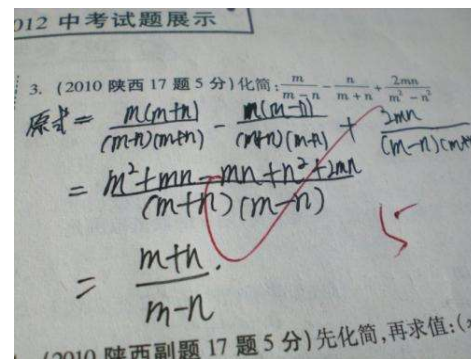 012 中考试题展示
3. (2010 陕西 17 题 5 分)化简: m/(m-n) - n/(m+n) + 2mn/(m²-n²)
原式 = m(m+n)/(m-n)(m+n) - n(m-n)/(m+n)(m-n) + 2mn/(m-n)(m+
= m²+mn-mn+n²+2mn/(m+n)(m-n)
= m+n/m-n.
5
(2010 陕西副题 17 题 5 分)先化简,再求值:(